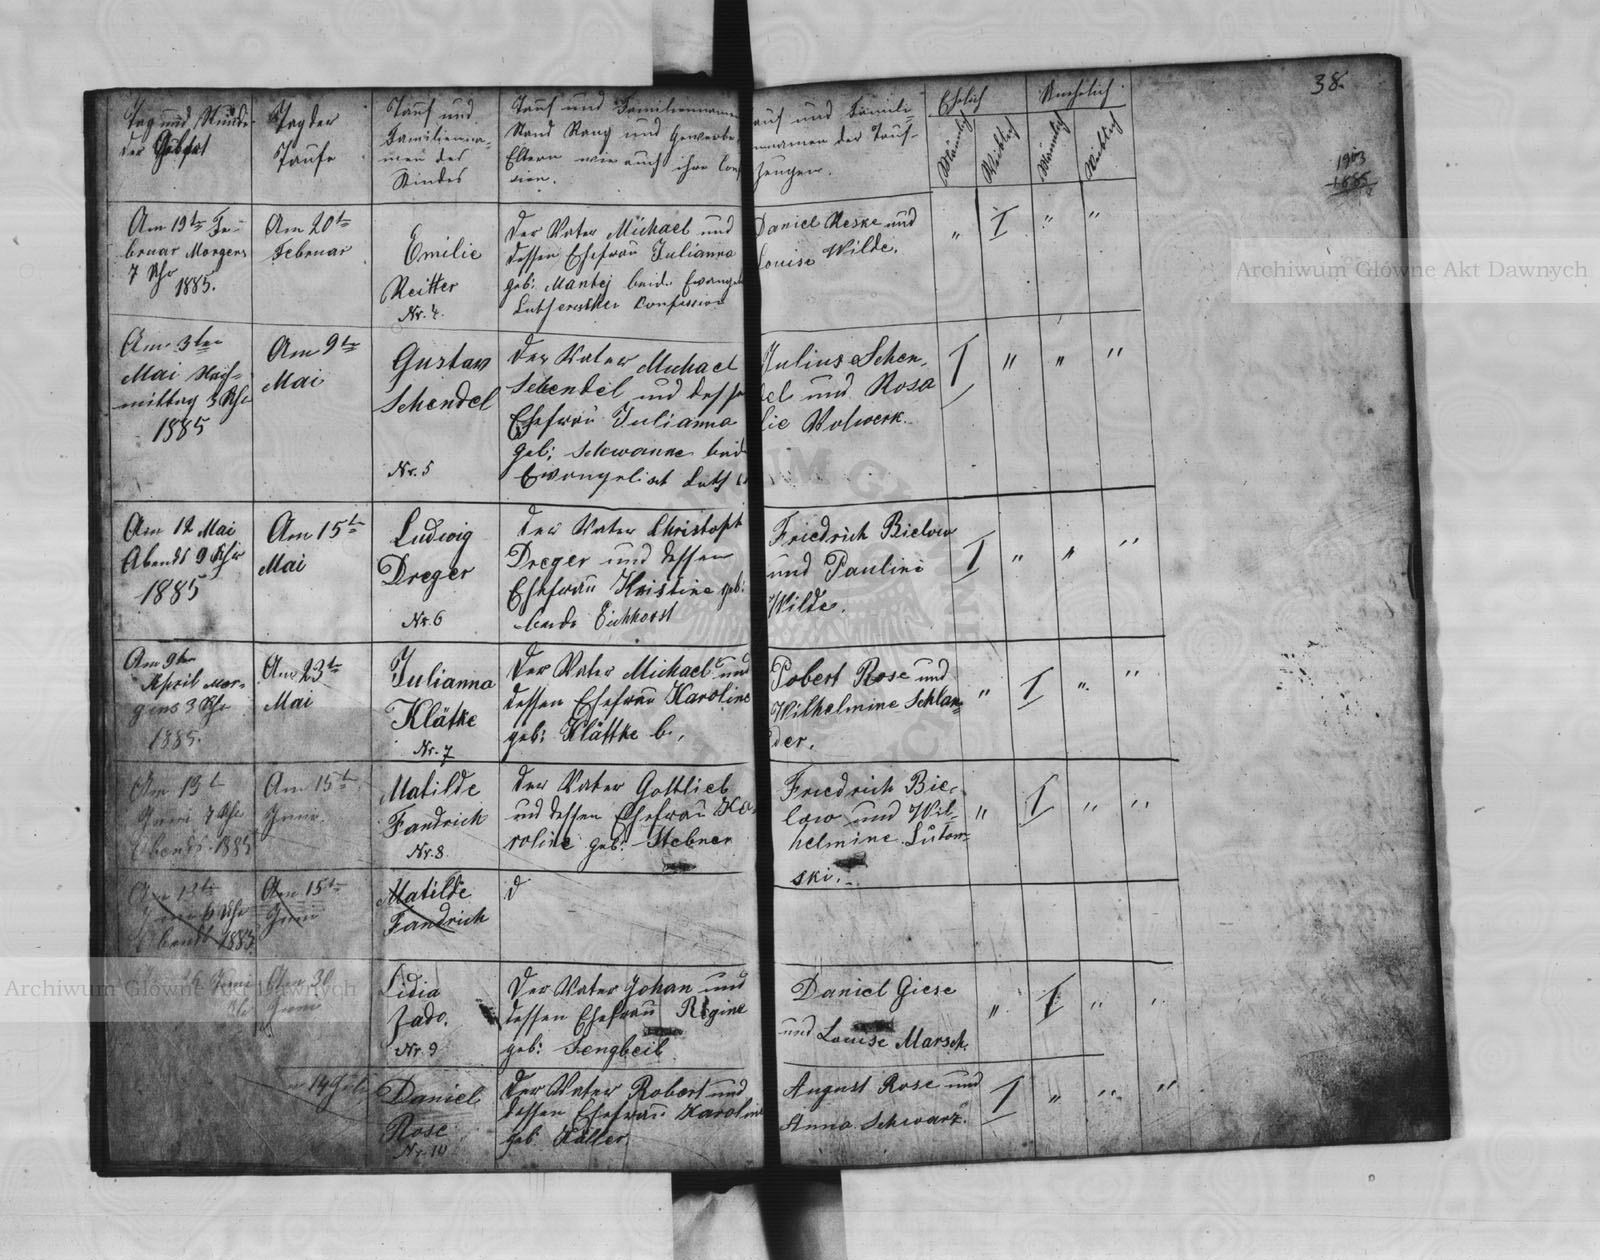 38.
Tag und Stunde
der Geburt
Tag der
Taufe
Tauf und
Familienna-
men des
Kindes
Tauf und Familiennamen
Stand Rang und Gewerbe
Eltern wie auch ihre
auf und Famili-
ennamen der Tauf-
zeugen.
Ehelich
Unehelich
Männlich
Weiblich
Männlich
Weiblich
1885
Am 19ten Fe-
bruar Morgens
7 Uhr
1885.
Am 20ten
Februar
Emilie
Reitter
Nr. 4.
Der Vater Michael und
dessen Ehefrau Julianna
geb: Mantej beide Evange
Lutherischer Confession
Daniel Reske und
Louise Wilde.
" I " "
Am 3ten
Mai Nach-
mittag 3 Uhr
1885
Am 9ten
Mai
Gustaw
Schendel
Nr. 5
Der Vater Michael
Schendel und desse
Ehefrau Julianna
geb: Schwanke beid
Evangelisch Luth
Julius Schen-
del und Rosa
lie Wolwerk.
I " " "
Am 12 Mai
Abends 9 Uhr
1885
Am 15ten
Mai
Ludwig
Dreger
Nr. 6
Der Vater Christoph
Dreger und dessen
Ehefrau Kristine geb:
beide Eichhorst
Friedrich Bielow
und Pauline
Wilde.
I " " "
Am 9ten
April Mor-
gens 3 Uhr
1885.
Am 23ten
Mai
Julianna
Klätke
Nr. 7
Der Vater Michael und
dessen Ehefrau Karoline
geb: Klättke b.
Robert Rose und
Wilhelmine Schlen-
der.
" I " "
Am 13t
Juni 7 Uhr
Abends 1885
Am 15t
Juni.
Matilde
Fandrich
Nr. 8.
Der Vater Gottlieb
und dessen Ehefrau Ka-
roline geb: Stebner
Friedrich Bie-
low und Wil-
helmine Lutom-
ski.
" I " "
Am 13t
Juni 6 Uhr
Abends 1885
Am 15t
Juni
Matilde
Fandrich
d
Juni
Am 30
Juni
Lidia
Zado.
Nr. 9
Der Vater Johan und
dessen Ehefrau Regine
geb: Sengbeil
Daniel Giese
und Louise Marsch.
" I " "
14 Juli
Daniel
Rose
Nr. 10
Der Vater Robert und
dessen Ehefrau Karoline
geb: Käller
August Rose und
Anna Schwarz.
I " " "
Archiwum Główne Akt Dawnych
Archiwum Główne Akt Dawnych